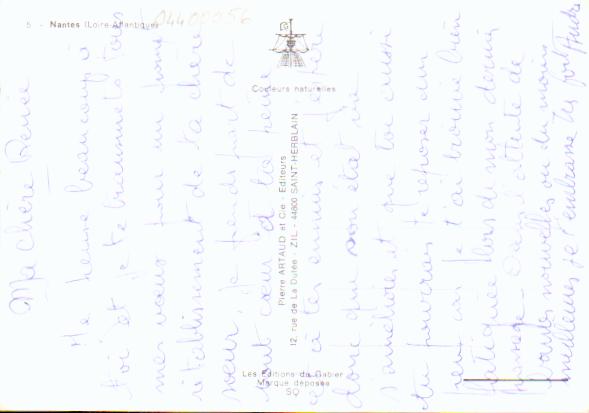 5 - Nantes (Loire-Atlantique)
04400056
Couleurs naturelles
Pierre ARTAUD et Cie - Editeurs
12, rue de La Dutée - Z.I.L - 44800 SAINT-HERBLAIN
Les Editions du Gabier
Marque déposée
SO
Ma chère Renée
pense beaucoup à
toi et te transmets tous
mes vœux pour un prompt
rétablissement de ta chère
sœur. Je prends part de
tout cœur à ta peine
et à tes ennuis et espère
donc que son état va
s'améliorer et que toi aussi
tu pourras te reposer un
peu car je t'ai trouvée bien
fatiguée lors de mon dernier
passage. Dans l'attente de
nouvelles ou du moins
meilleures je t'embrasse très fort